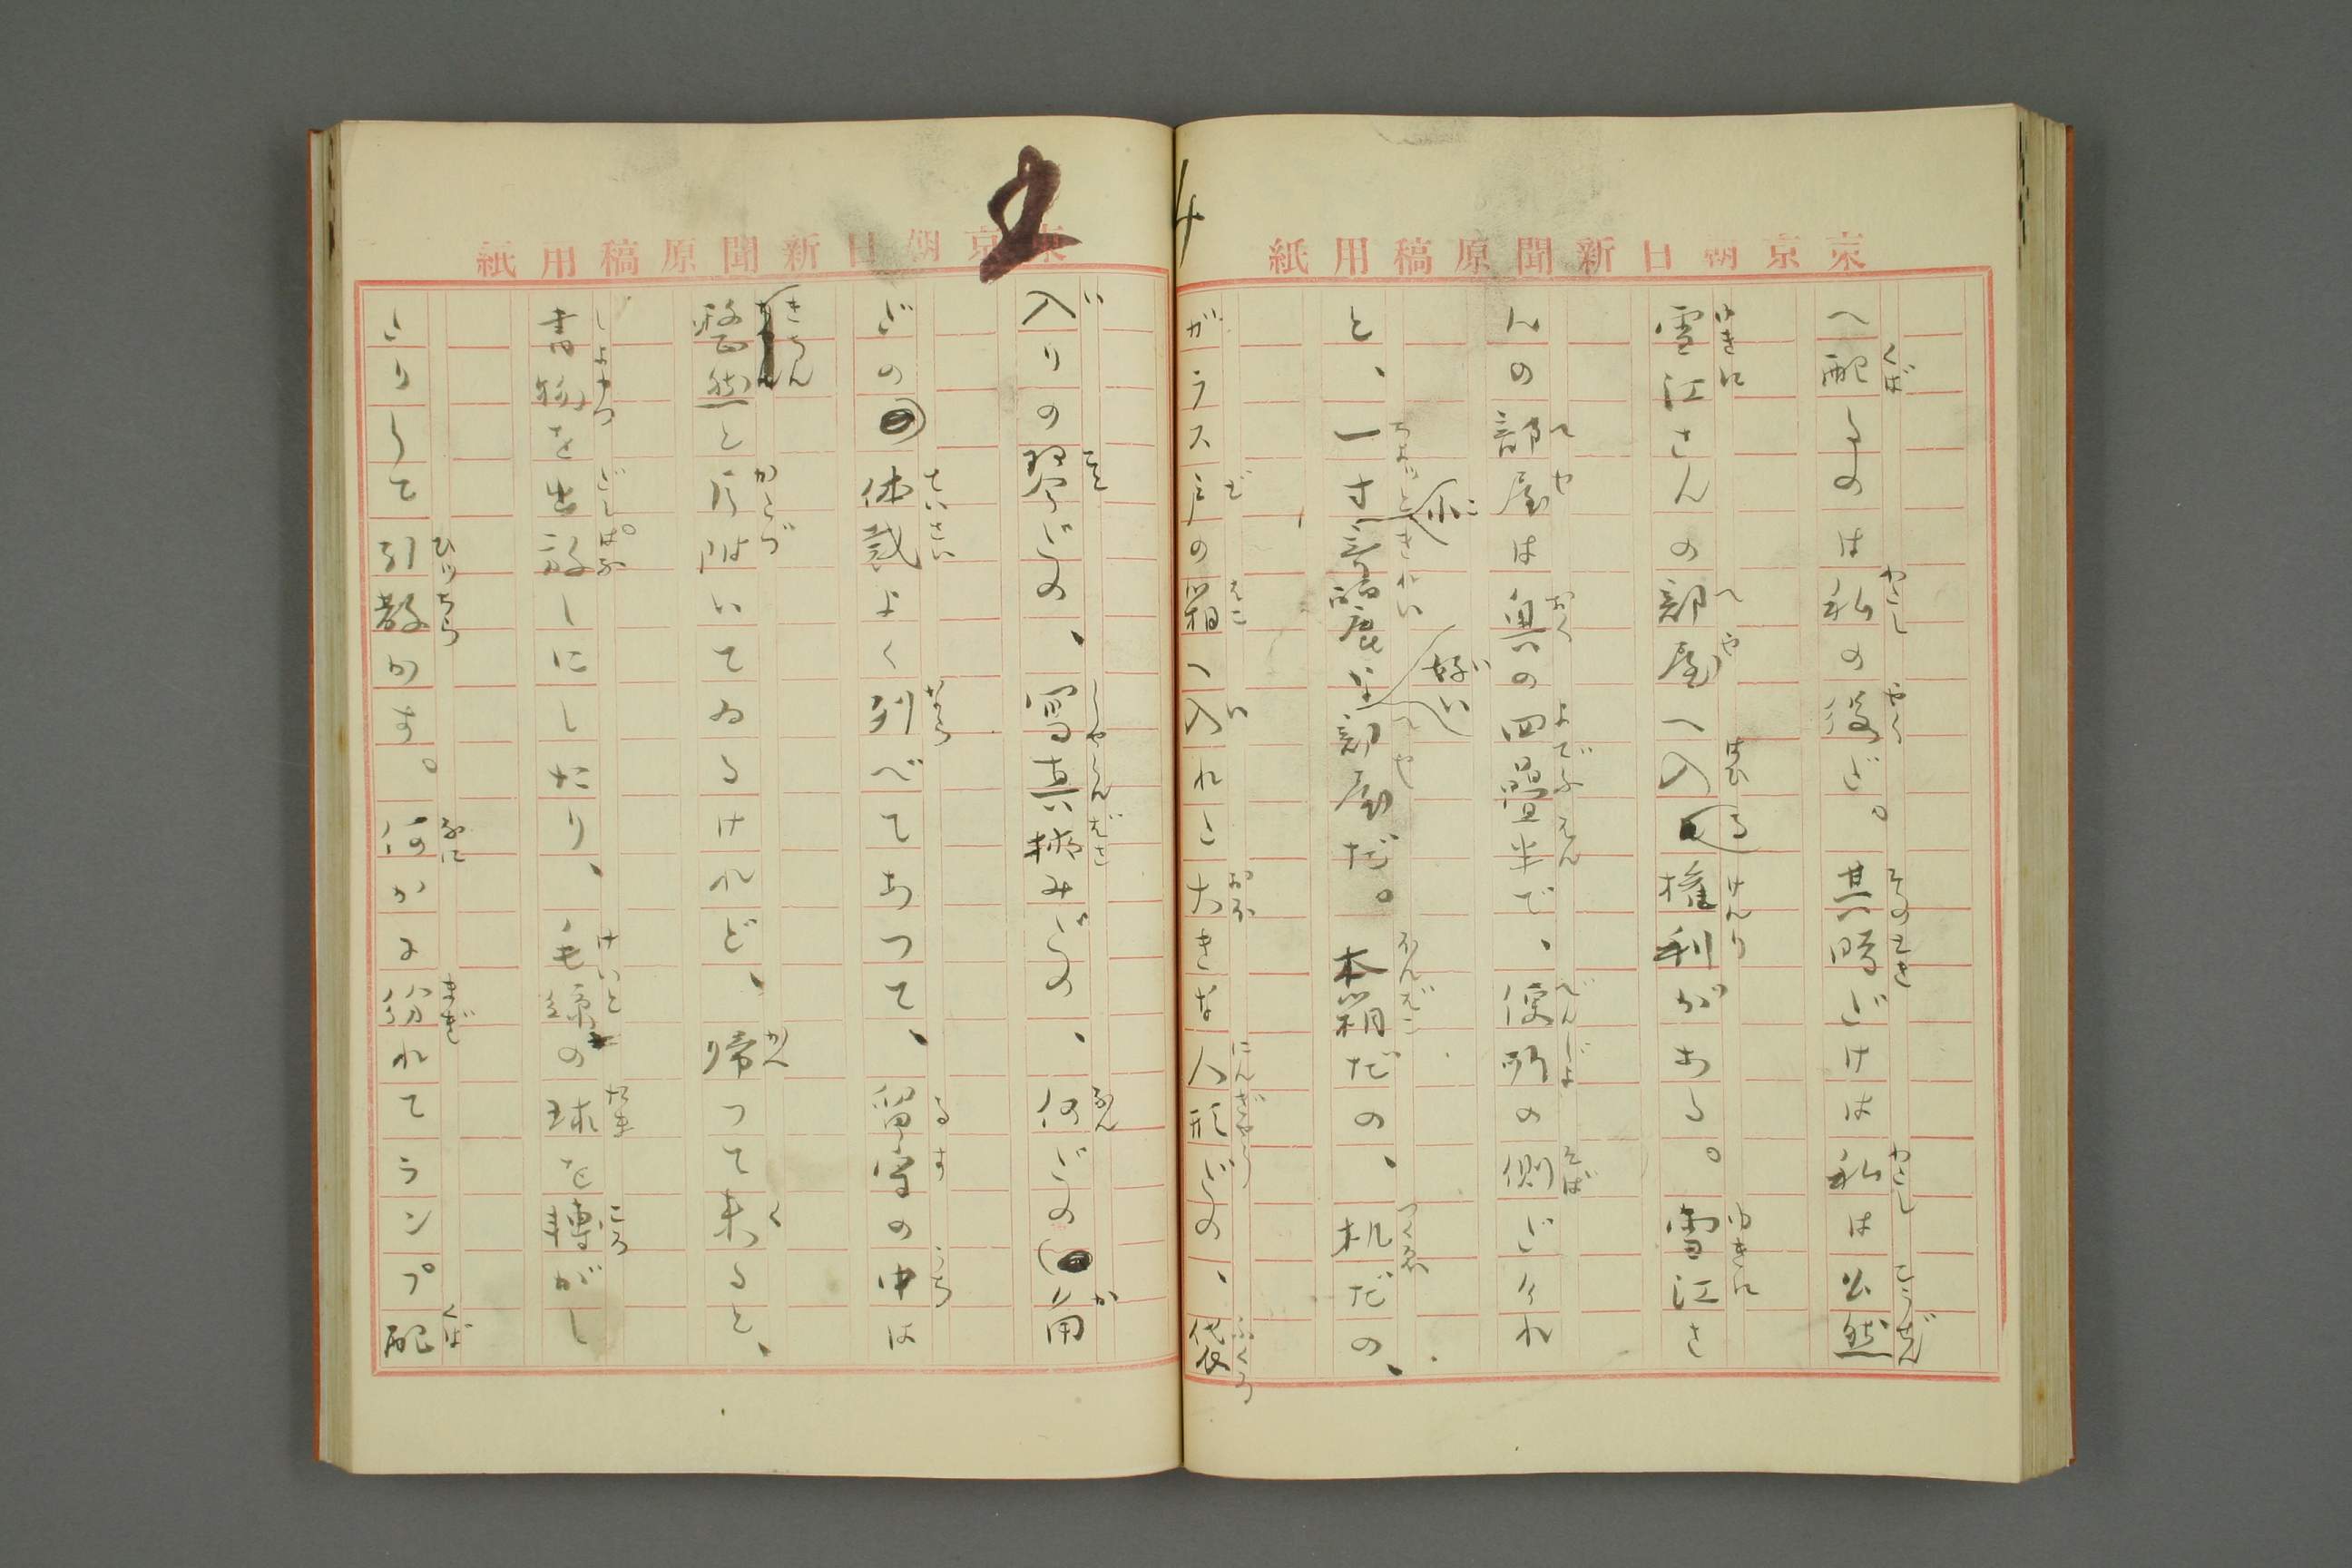 東京朝日新聞原稿用紙
へ配るのは私の役だ。其時だけは私は公然
雪江さんの部屋へ入る権利がある。雪江さ
んの部屋は奥の四畳半で、便所の側だけれ
ど、一寸小綺麗な好い部屋だ。本箱だの、机だの、
ガラス戸の箱へ入れた大きな人形だの、袋
4
東京朝日新聞原稿用紙
入りの琴だの、写真挟みだの、何だの角
だの体裁よく列べてあつて、留守の中は
整然と片附いてゐるけれど、帰つて来ると、
書物を出放しにしたり、毛糸の球を転がし
たりして引散かす。何かに紛れてランプ配